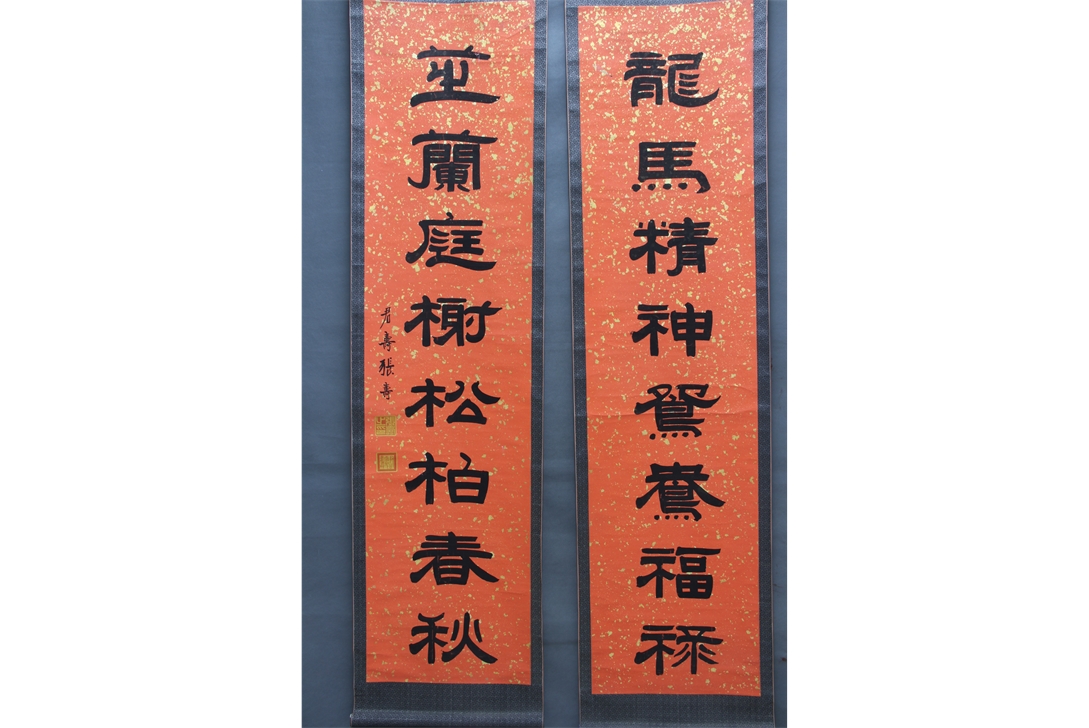 龍馬精神鴛鴦福祿
芝蘭庭榭松柏春秋
君壽張壽